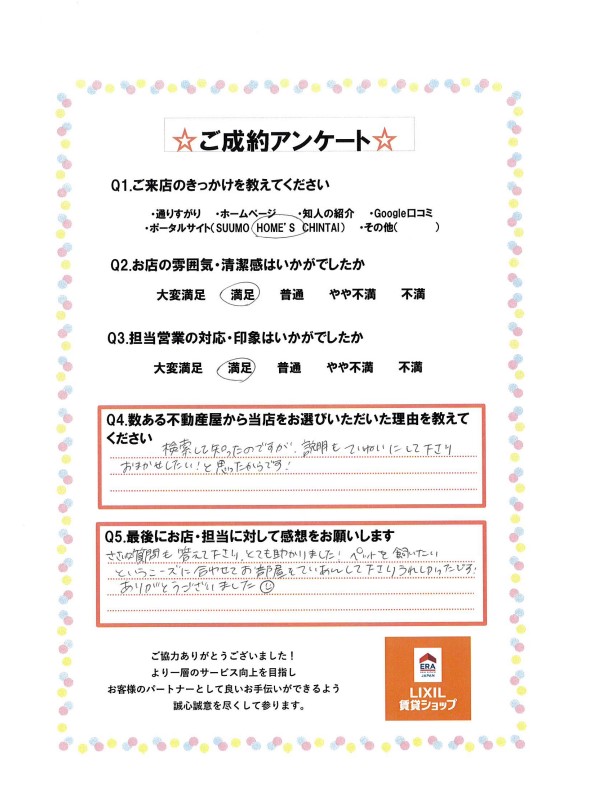 ☆ご成約アンケート☆
Q1.ご来店のきっかけを教えてください
・通りすがり ・ホームページ ・知人の紹介 ・Google口コミ
・ポータルサイト(SUUMO HOME'S CHINTAI) ・その他( )
Q2.お店の雰囲気・清潔感はいかがでしたか
大変満足 満足 普通 やや不満 不満
Q3.担当営業の対応・印象はいかがでしたか
大変満足 満足 普通 やや不満 不満
Q4.数ある不動産屋から当店をお選びいただいた理由を教えて
ください
検索して知ったのですが、説明もていねいにして下さり
おまかせしたい!と思ったからです!
Q5.最後にお店・担当に対して感想をお願いします
ささいな質問も答えて下さり、とても助かりました!ペットを飼いたい
というニーズに合わせてお部屋をていあんして下さりうれしかったです。
ありがとうございました
ご協力ありがとうございました!
より一層のサービス向上を目指し
お客様のパートナーとして良いお手伝いができるよう
誠心誠意を尽くして参ります。
ERA
JAPAN
LIXIL
賃貸ショップ